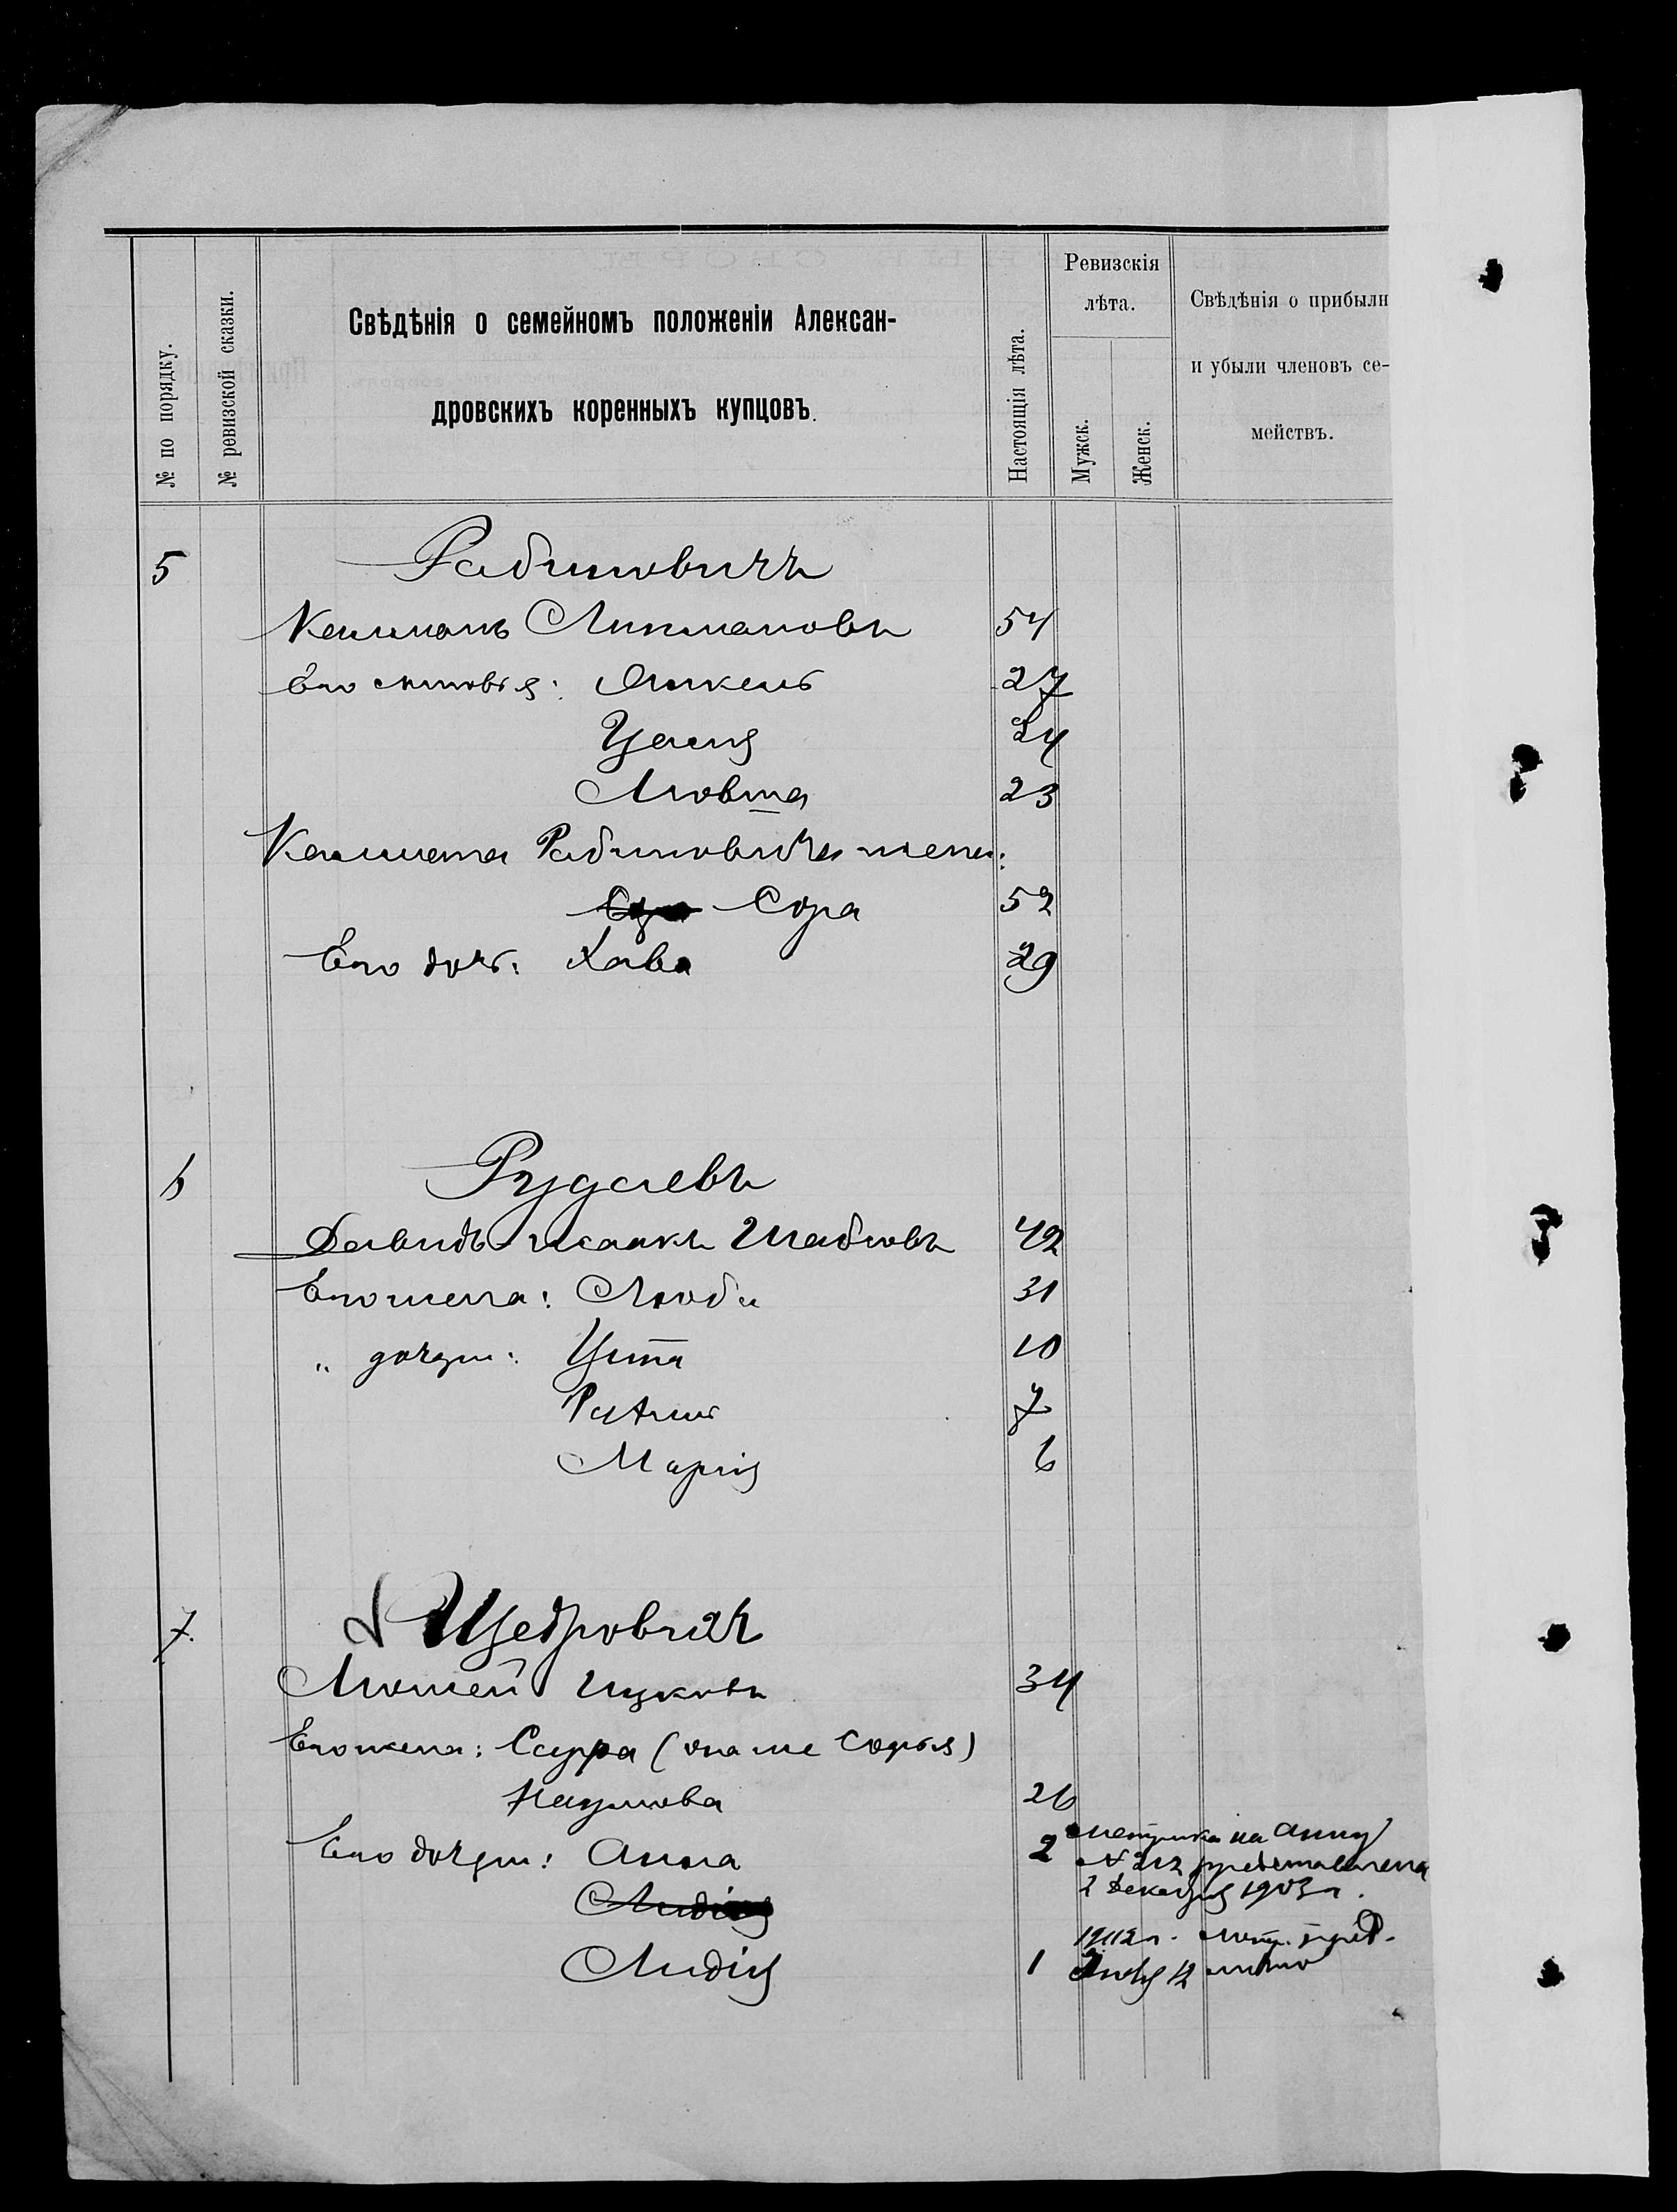 № по порядку.
№ ревизской сказки.
Свѣдѣнія о семейномъ положеніи Алексан-
дровскихъ коренныхъ купцовъ.
Настоящія лѣта.
Ревизскія
лѣта.
Мужск.
Женск.
Свѣдѣнія о прибыли
и убыли членовъ се-
мействъ.
5 Рабиновичъ
Калманъ Липмановъ 54
Его сыновья: Янкель 27
Цаля 24
23
Калмана Рабиновича жена:
Сора 52
Его дочь: Хава 29
6 Рудаевъ
Давидъ-Исаакъ 42
Его жена: Люба 31
" дочери: Цита 10
Рахиль 7
Марія 6
7. Щедровичъ
Мошей Ицковъ 34
Его жена: Сарра (она же Софья)
Наумова 26
Его дочери: Анна 2 Метрика на Анну
№ 212 представлена
2 Декабря 1903 г.
Лидія
1912 г. метр. пред.
Лидія 1